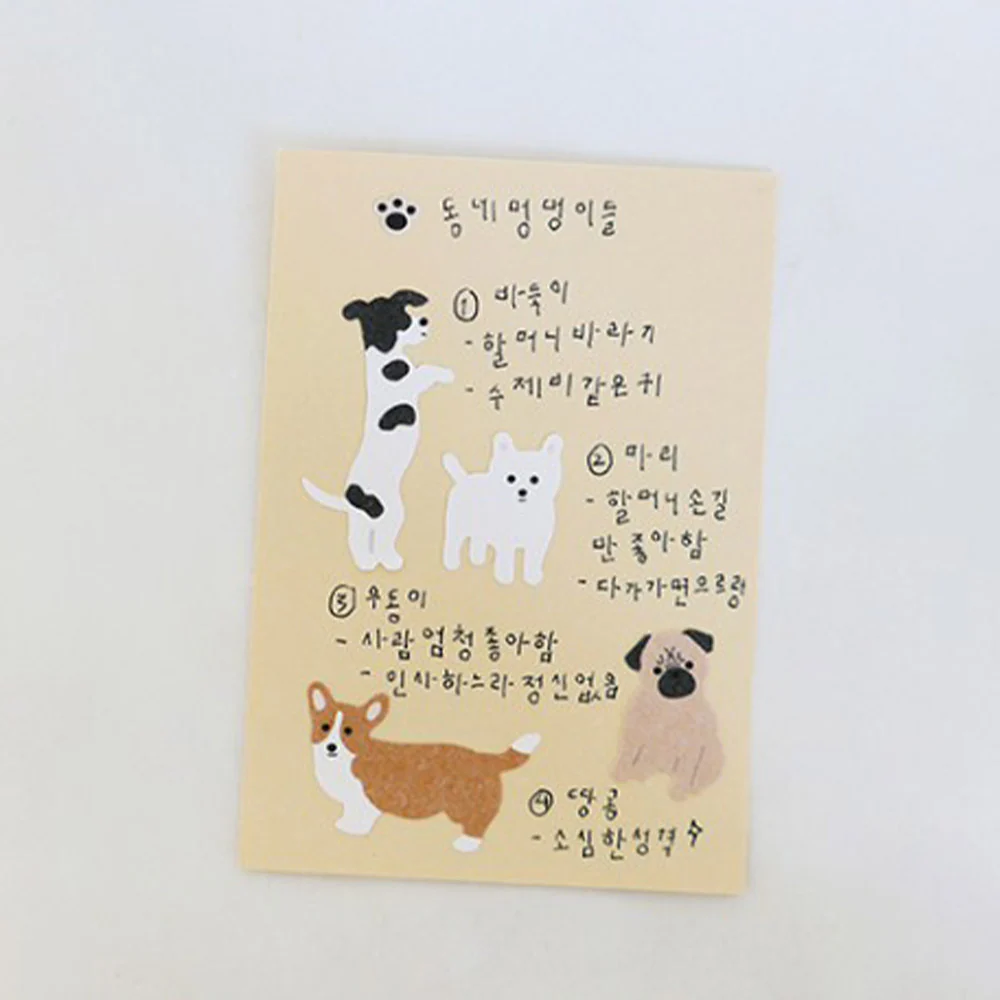 동네멍멍이들
① 바둑이
- 할머니바라기
- 수제비같은귀
② 마리
- 할머니손길
만 좋아함
- 다가가면으르렁
③ 우동이
- 사람엄청좋아함
- 인사하느라정신없음
④ 땅콩
- 소심한성격